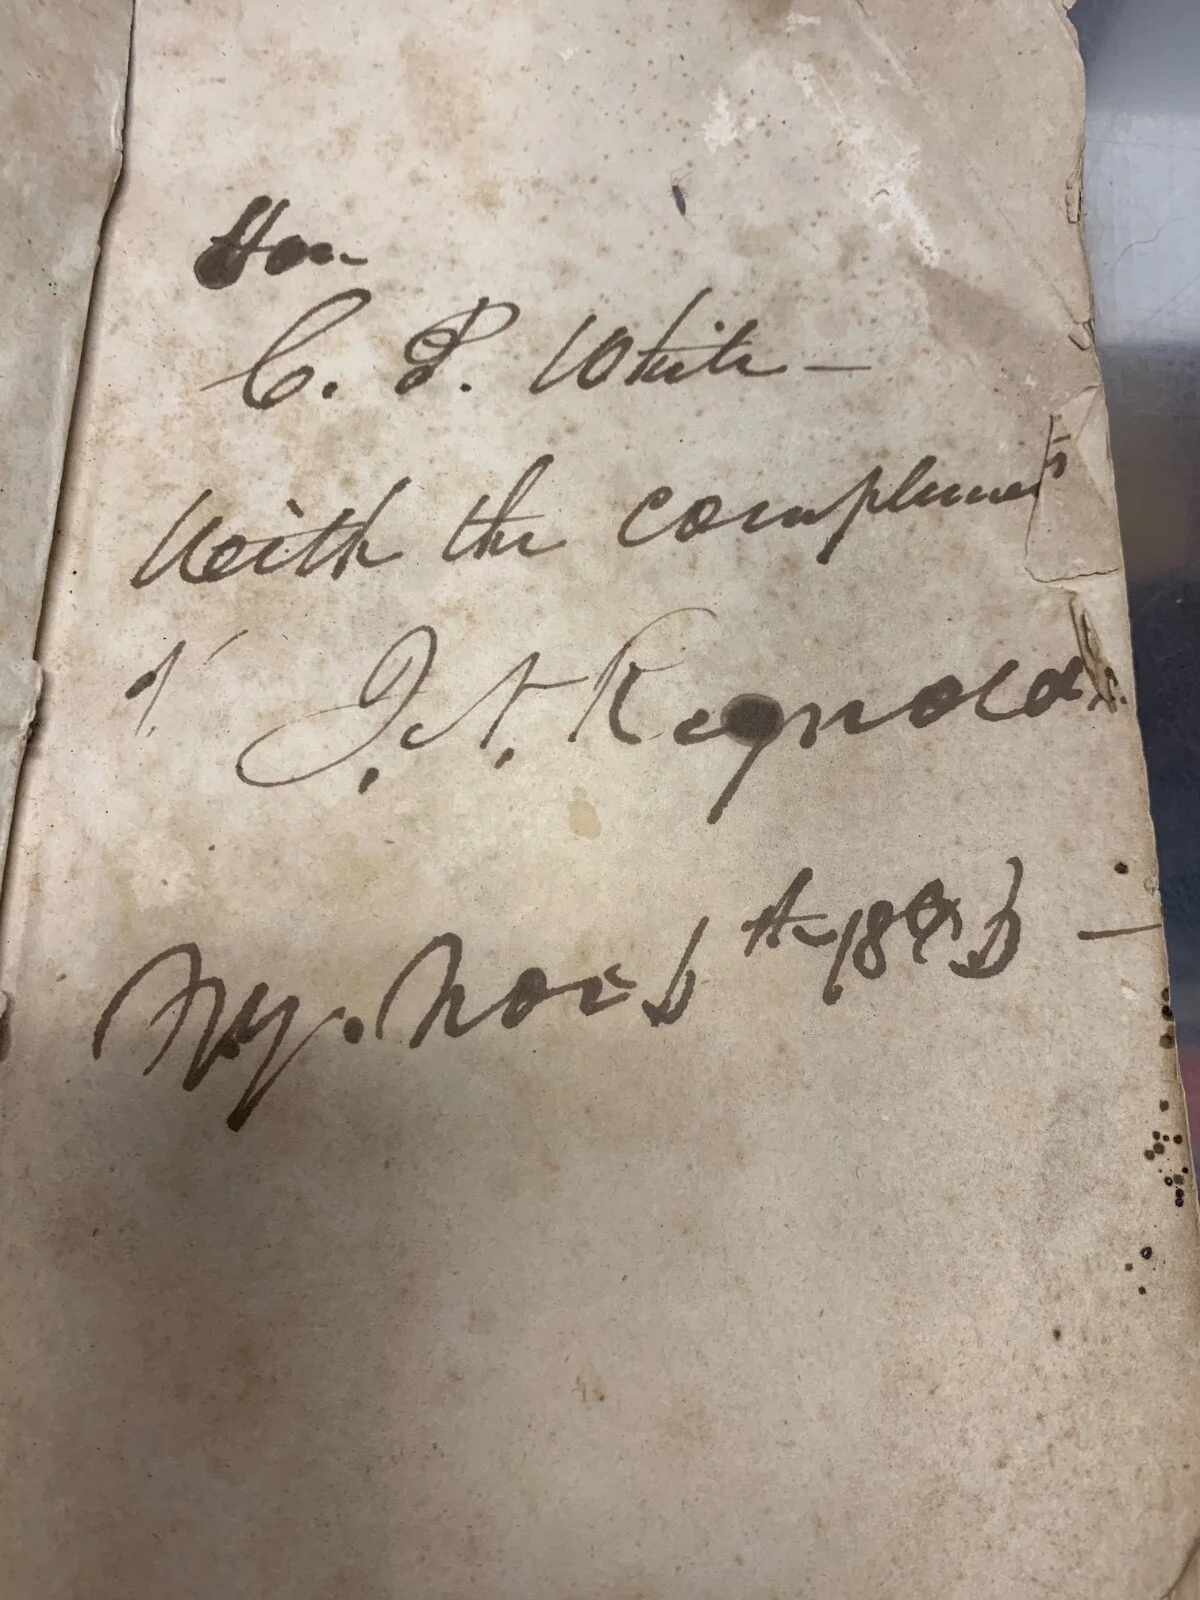 Hon
C. P. White —
With the compliments
of J. N. Reynolds.
N.Y. Nov 5th 1835 —